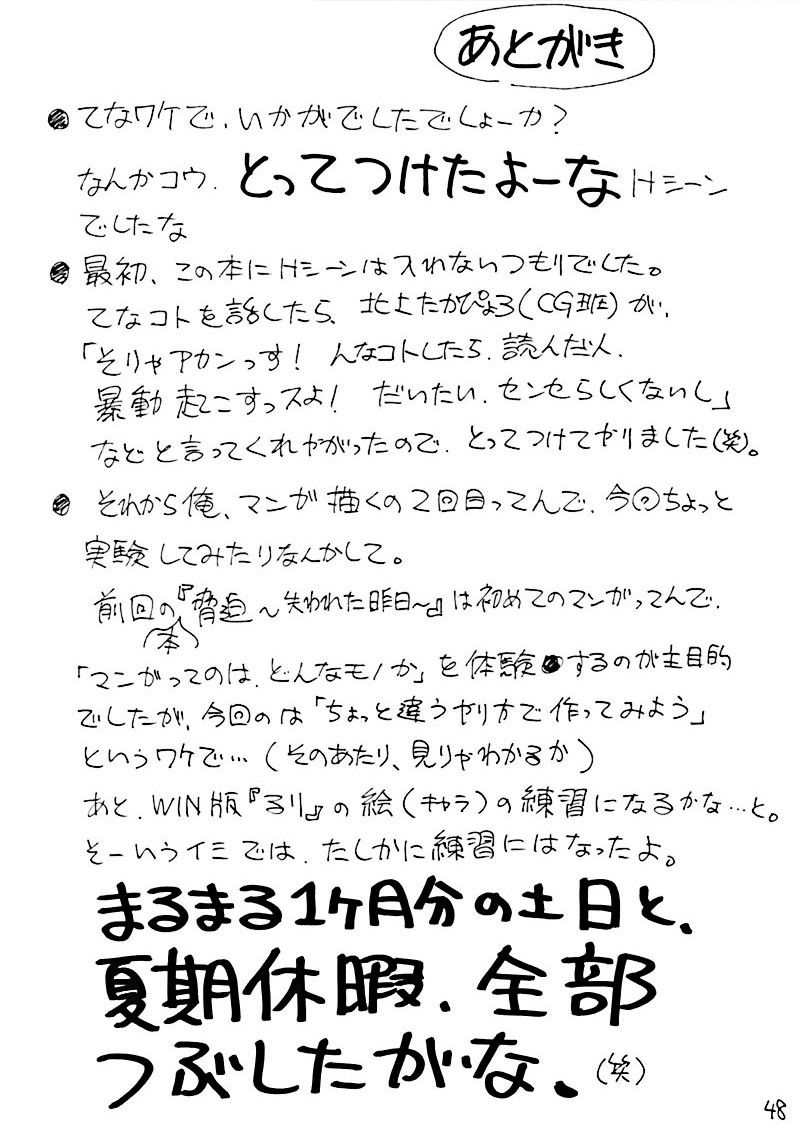 あとがき
●てなワケで、いかがでしたでしょーか?
なんかコウ、とってつけたよーなHシーン
でしたな
●最初、この本にHシーンは入れないつもりでした。
てなコトを話したら、北上たかぴょろ(CG班)が、
「そりゃアカンっす! んなコトしたら、読んだ人、
暴動起こすっスよ! だいたい、センセらしくないし」
などと言ってくれヤがったので、とってつけてヤりました(笑)。
●それから俺、マンガ描くの2回目ってんで、今回ちょっと
実験してみたりなんかして。
前回の本『脅迫〜失われた昨日〜』は初めてのマンガってんで、
「マンガってのは、どんなモノか」を体験するのが主目的
でしたが、今回のは「ちょっと違うヤリ方で作ってみよう」
というワケで…(そのあたり、見りゃわかるか)
あと、WIN版『るり』の絵(キャラ)の練習になるかな…と。
そーいうイミでは、たしかに練習にはなったよ。
まるまる1ケ月分の土日と、
夏期休暇、全部
つぶしたがな、(笑)
48